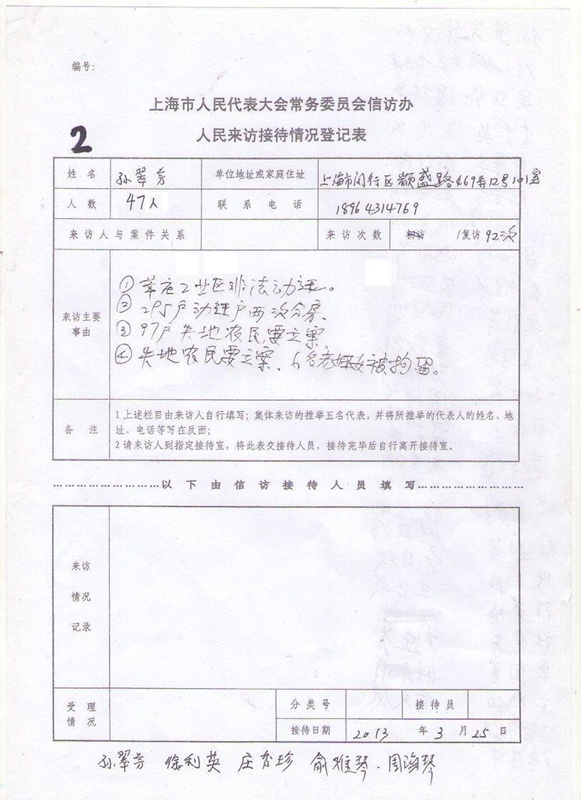 编号:
上海市人民代表大会常务委员会信访办
2
人民来访接待情况登记表
姓名 孙翠芳 单位地址或家庭住址 上海市闵行区颛盛路469弄12号101室
人数 47人 联系电话 18964314769
来访人与案件关系 来访次数 初访 /复访 92次
来访主要事由
①莘庄工业区非法动迁。
②295户动迁户两次分房
③97户失地农民要立案
④失地农民要立案、6名老妇女被拘留。
备注
1上述栏目由来访人自行填写;集体来访的推举五名代表,并将所推举的代表人的姓名、地
址、电话等写在反面;
2请来访人到指定接待室,将此表交接待人员,接待完毕后自行离开接待室.
以下由信访接待人员填写
来访
情况
记录
受理 分类号 接待员
情况 接待日期 2013年3月25日
孙翠芳 徐利英 庄秀珍 俞雅琴、周海琴